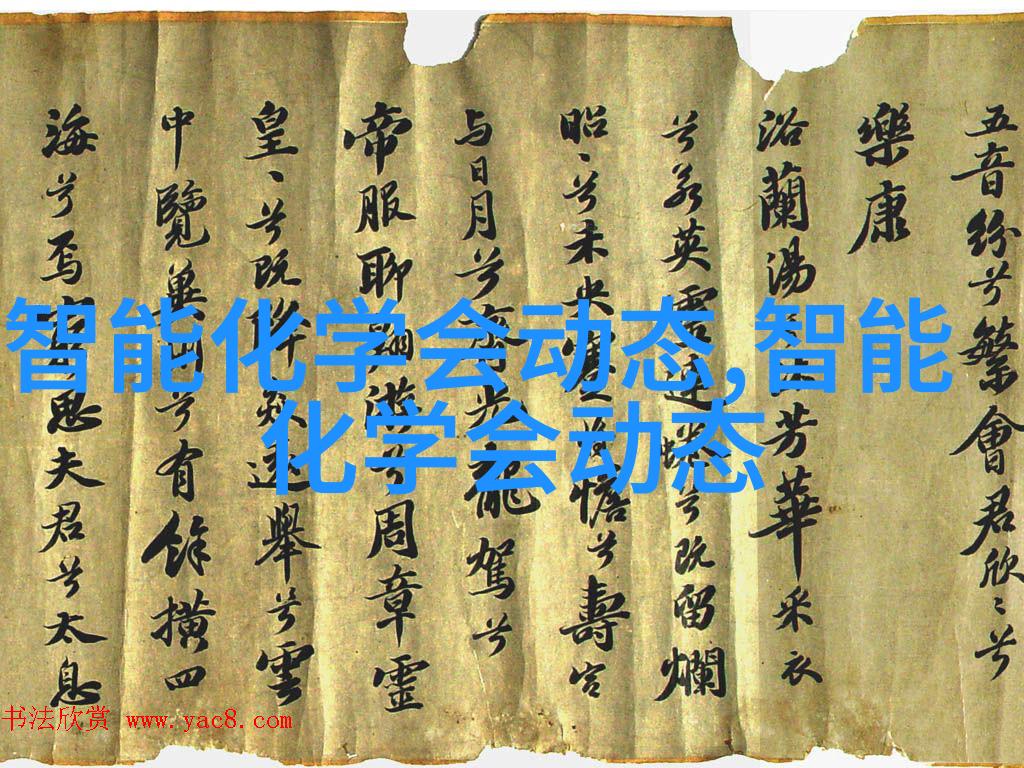 五音紛兮繁會君欣〻兮
樂康
浴蘭湯芳華采衣
兮若英靈連蜷兮既留爛
昭〻兮未央蹇憺兮壽宮
与日月兮齊光龍駕兮
帝服聊翱游兮周章靈
皇〻兮既降猋遠舉兮雲
中覽冀州兮有餘橫四
海兮焉思夫君兮太息
智能化学会动态,智能
化学会动态
书法欣赏 www.yac8.com